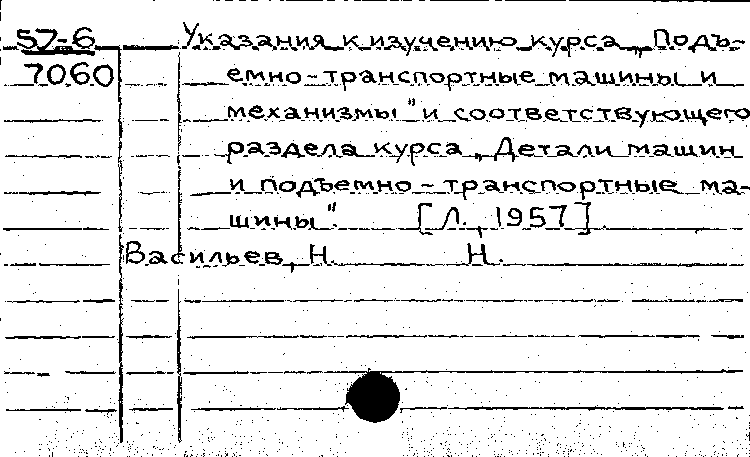 57-6 Указания к изучению курса „Подъ-
7060 емно-транспортные машины и
механизмы" и соответствующего
раздела курса „Детали машин
и подъемно-транспортные ма-
шины". [Л., 1957].
Васильев, Н. Н.